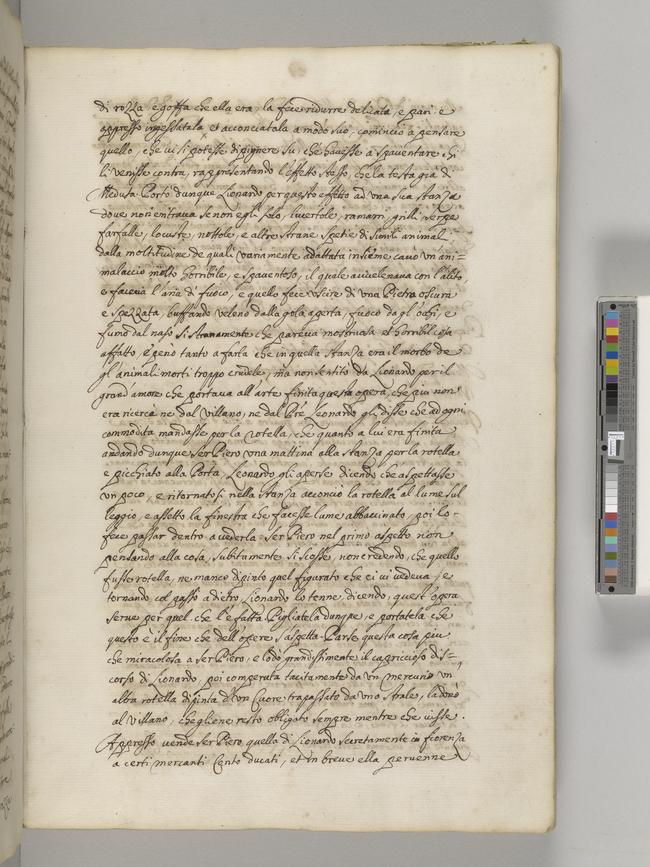 di rozza e goffa che ella era, la fece ridurre delicata, e pari, e
appresso ingessatala, et acconciatala a modo suo, comincio a pensare
quello, che vi si potesse dipignere sù, che havesse a spaventare chi
li venisse contra, rappresentando l'effetto stesso, che la testa già di
Medusa. Portò dunque Lionardo per questo effetto ad una sua stanza
dove non entrava se non egli solo, lucertole, ramarri, grilli, serpe
farfalle, locuste, nottole, e altre strane spetie di simili animali
dalla moltitudine de quali variamente adattata insieme cavò un ani=
malaccio molto horribile, e spaventoso, il quale avvelenava con l'alito,
e faceva l'aria di fuoco, e quello fece uscire di una Pietra oscura
e spezzata, buffando veleno dalla gola aperta, fuoco dagl'occhi, e
fumo dal naso si stranamente che pareva mostruosa et horribil cosa
affatto, e penò tanto a farla che in quella stanza era il morbo de
gl'animali morti troppo crudele, ma non sentito da Lionardo per il
grand'amore che portava all'arte finita questa opera, che piu non
era ricerca ne dal Villano, ne dal P.re Leonardo gli disse che ad ogni
commodità mandasse per la rotella, che quanto a lui era finita
andando dunque ser Piero una mattina alla stanza per la rotella
e picchiato alla Porta, Leonardo gli aperse dicendo che aspettasse
un poco, e ritornatosi nella stanza acconciò la rotella al lume sul
leggio, e assettò la finestra che facesse lume abbaccinato, poi lo
fece passar dentro a vederla. ser Piero nel primo aspetto non
pensando alla cosa, subitamente si scosse, non credendo, che quella
fusse rotella, ne manco dipinto quel figurato che ei vi vedeva, e
tornando col passo a dietro, Lionardo lo tenne, dicendo, quest'opera
serve per quel che l'è fatta Pigliatela dunque, e portatela che
questo è il fine che dell'opere s'aspetta. Parse questa cosa piu
che miracolosa a ser Piero, e lodò grandissimente il capriccioso dis=
corso di Lionardo, poi comperata tacitamente da un merciaio un
altra rotella dipinta d'un Cuore trapassato da uno strale, la donò
al Villano, che gliene restò obligato sempre mentre che visse.
Appresso vendè ser Piero quella di Lionardo secretamente in fiorenza
a certi mercanti Cento ducati, et in breve ella pervenne